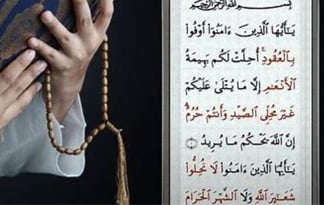 بِسْمِ ٱللَّهِ ٱلرَّحْمَٰنِ ٱلرَّحِيمِ
يَٰٓأَيُّهَا ٱلَّذِينَ ءَامَنُوٓا۟ أَوْفُوا۟
بِٱلْعُقُودِ ۚ أُحِلَّتْ لَكُم بَهِيمَةُ
ٱلْأَنْعَٰمِ إِلَّا مَا يُتْلَىٰ عَلَيْكُمْ
غَيْرَ مُحِلِّى ٱلصَّيْدِ وَأَنتُمْ حُرُمٌ ۗ
إِنَّ ٱللَّهَ يَحْكُمُ مَا يُرِيدُ ١
يَٰٓأَيُّهَا ٱلَّذِينَ ءَامَنُوا۟ لَا تُحِلُّوا۟
شَعَٰٓئِرَ ٱللَّهِ وَلَا ٱلشَّهْرَ ٱلْحَرَامَ